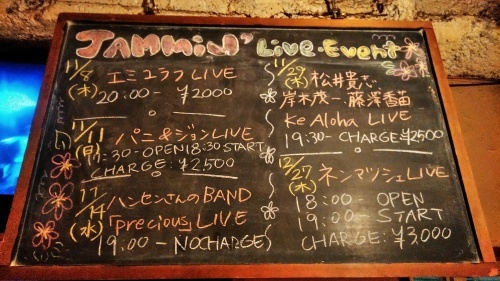 JAMMIN' Live・Event
11/8 (木) エミユララ LIVE
20:00- ¥2000
11/11 (日) パニ&ジョン LIVE
17:30-OPEN 18:30 START
CHARGE: ¥2,500
11/14 (水) ハンセンさんのBAND
「precious」LIVE
19:00- NOCHARGE
11/29 (木) 松井貴志
岸木茂一・藤澤香苗
Ke Aloha LIVE
19:30- CHARGE: ¥2500
12/27 (木) ネンマツシュ LIVE
18:00- OPEN
19:00- START
CHARGE: ¥3,000